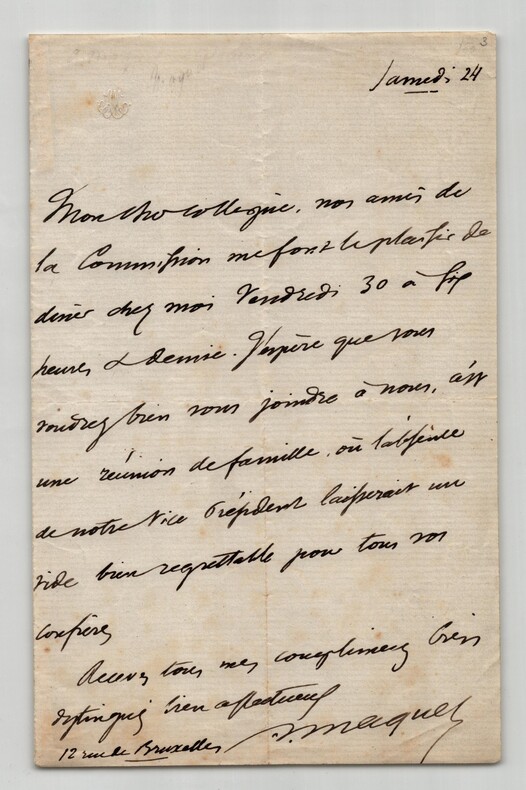 3
Samedi 24
Mon cher collègue, nos amis de
la Commission me font le plaisir de
dîner chez moi Vendredi 30 à six
heures & demie. J'espère que vous
voudrez bien vous joindre à nous, c'est
une réunion de famille, où l'absence
de notre Vice Président laisserait un
vide bien regrettable pour tous vos
confrères
Recevez tous mes compliments bien
distingués bien affectueux
A. Maquet
12 rue de Bruxelles